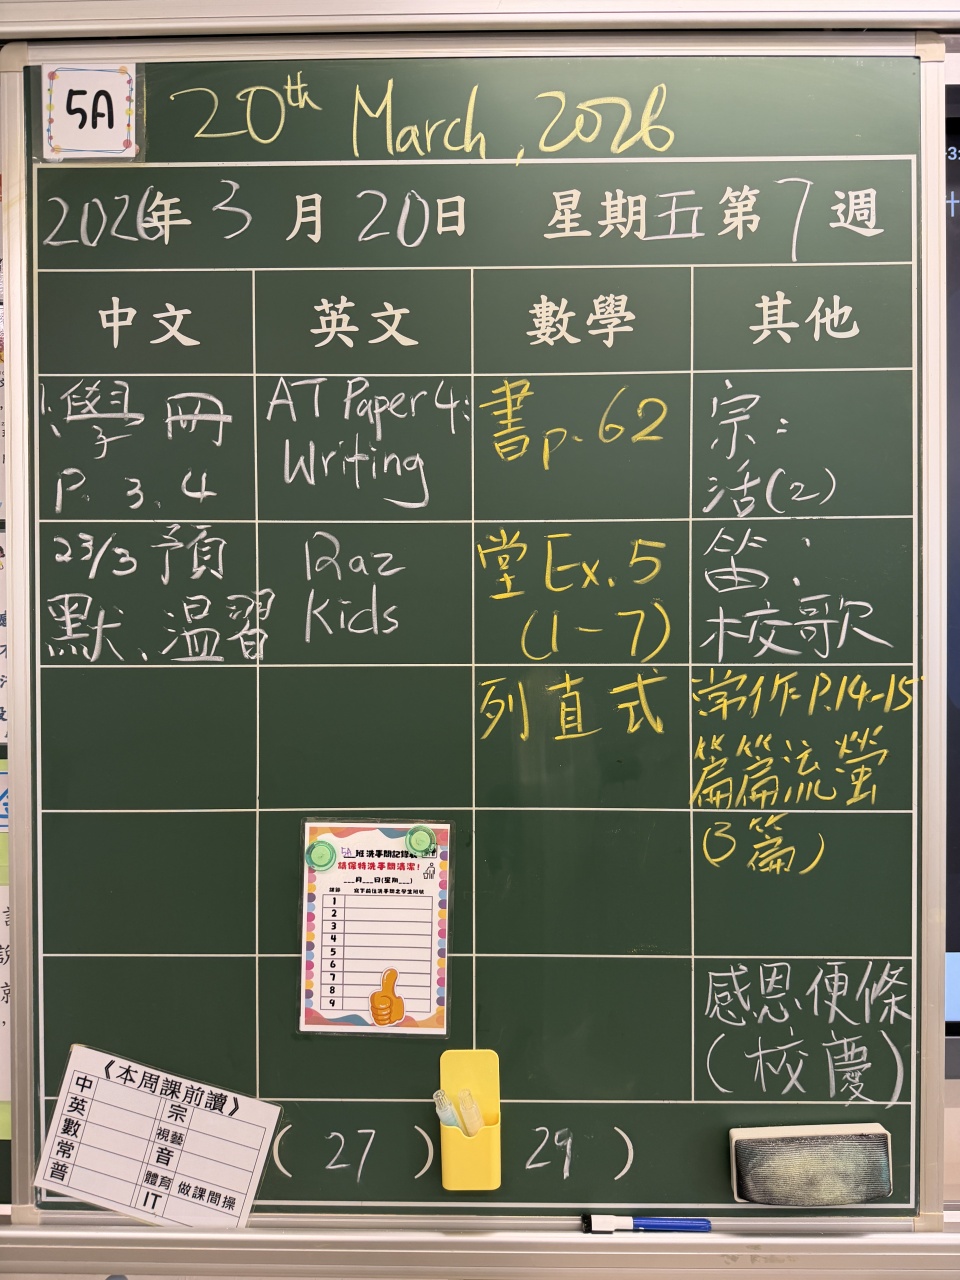 5A
20th March, 2026
2026年3月20日 星期五第7週
中文 英文 數學 其他
1.學冊
P. 3, 4
AT Paper 4:
Writing
書p. 62
宗:
活(2)
23/3 預
默、溫習
Raz
Kids
堂Ex. 5
(1-7)
笛:
校歌
列直式
常作P.14-15
篇篇流螢
(3篇)
5A班洗手間記錄表
請保持洗手間清潔!
___月___日(星期___)
1
2
3
4
5
6
7
8
9
感恩便條
(校慶)
《本周課前讀》
中 宗
英 視藝
數 音
常 體育 做課間操
普 IT
( 27 ) 29 )